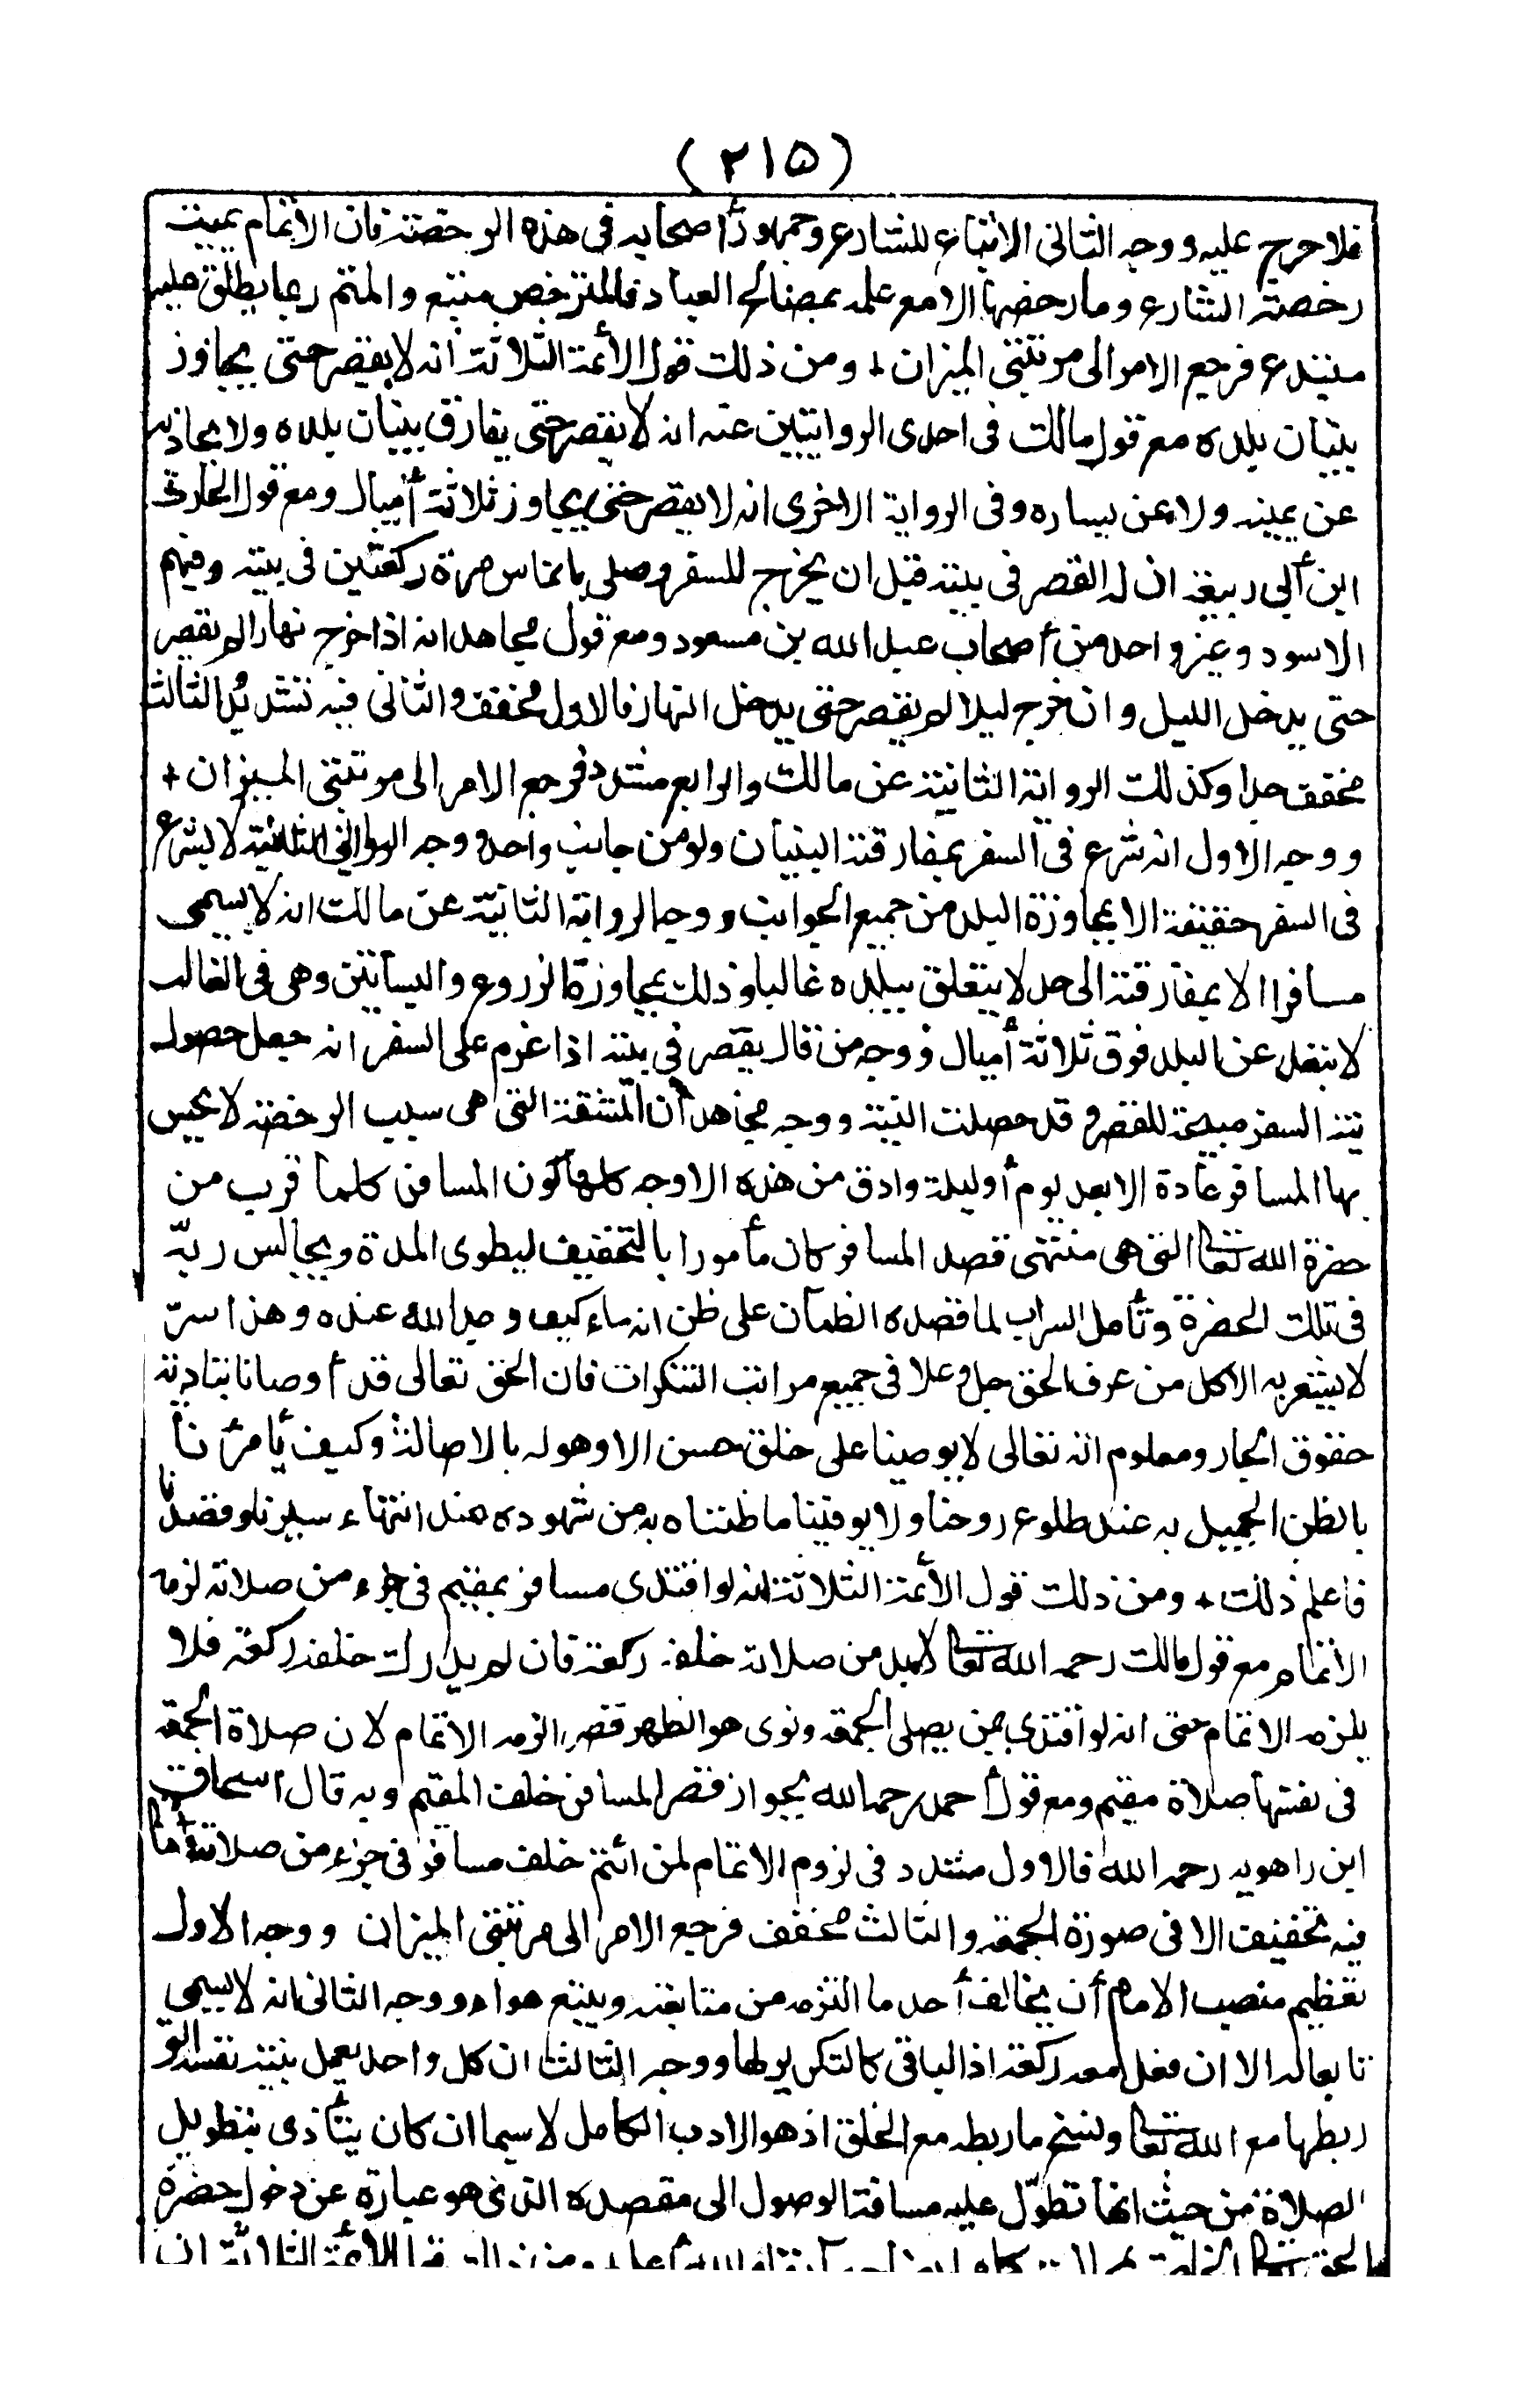 (٢١٥)
فلا حرج عليه ووجه الثانى الاتباع للشارع وجمهور أصحابه فى هذه الرخصة فان الاتمام يميت
رخصة الشارع وما رخصها الا مع علمه بمصالح العباد فالمترخص متبع والمتم ربما يطلق عليه
مبتدع فرجع الامر الى مرتبتى الميزان + ومن ذلك قول الأئمة الثلاثة انه لا يقصر حتى يجاوز
بنيان بلده مع قول مالك فى احدى الروايتين عنه انه لا يقصر حتى يفارق بنيان بلده ولا يحاذيه
عن يمينه ولا عن يساره وفى الرواية الاخرى انه لا يقصر حتى يجاوز ثلاثة أميال ومع قول الحارث
ابن أبى ربيعة ان له القصر فى بيته قبل ان يخرج للسفر وصلى بالناس مرة ركعتين فى بيته وفيهم
الاسود وغير واحد من أصحاب عبد الله بن مسعود ومع قول مجاهد انه اذا خرج نهارا لم يقصر
حتى يدخل الليل وان خرج ليلا لم يقصر حتى يدخل النهار فالاول مخفف والثانى فيه تشديد والثالث
مخفف جدا وكذلك الرواية الثانية عن مالك والرابع مشدد فرجع الامر الى مرتبتى الميزان +
ووجه الاول انه شرع فى السفر بمفارقته البنيان ولو من جانب واحد ووجه الثانى انه لا يشرع
فى السفر حقيقة الا بمجاوزة البلد من جميع الجوانب ووجه الرواية الثانية عن مالك انه لا يسمى
مسافرا الا بمفارقته الى حد لا يتعلق ببلده غالبا وذلك بمجاوزة الزروع والبساتين وهى فى الغالب
لا تبعد عن البلد فوق ثلاثة أميال ووجه من قال يقصر فى بيته اذا عزم على السفر انه جعل حصول
نية السفر مبيحة للقصر وقد حصلت النية ووجه مجاهد أن المشقة التى هى سبب الرخصة لا يحس
بها المسافر عادة الا بعد يوم أو ليلة وادق من هذه الاوجه كلها كون المسافر كلما قرب من
حضرة الله تعالى التى هى منتهى قصد المسافر كان مأمورا بالتخفيف ليطوى المدة ويجالس ربّه
فى تلك الحضرة وتأمل السراب لما قصده الظمآن على ظن انه ماء كيف وجد الله عنده وهذا سرّ
لا يشعر به الا كل من عرف الحق جل وعلا فى جميع مراتب التنكرات فان الحق تعالى قد أوصانا بتادية
حقوق الجار ومعلوم انه تعالى لا يوصينا على خلق حسن الا وهو له بالاصالة وكيف يأمرنا
بالظن الجميل به عند طلوع روحنا ولا يوفينا ما ظنناه به من شهوده عند انتهاء سيرنا وقصدنا
فاعلم ذلك + ومن ذلك قول الأئمة الثلاثة انه لو اقتدى مسافر بمقيم فى جزء من صلاته لزمه
الاتمام مع قول مالك رحمه الله تعالى لا بد من صلاته خلفه ركعة فان لم يدرك خلفه ركعة فلا
يلزمه الاتمام حتى انه لو اقتدى بمن يصلى الجمعة ونوى هو الظهر قصرا لزمه الاتمام لان صلاة الجمعة
فى نفسها صلاة مقيم ومع قول أحمد رحمه الله بجواز قصر المسافر خلف المقيم وبه قال اسحاق
ابن راهويه رحمه الله فالاول مشدد فى لزوم الاتمام لمن ائتم خلف مسافر فى جزء من صلاته والثانى
فيه تخفيف الا فى صورة الجمعة والثالث مخفف فرجع الامر الى مرتبتى الميزان ووجه الاول
تعظيم منصب الامام أن يخالف أحد ما التزمه من متابعته ويتبع هواه ووجه الثانى انه لا يسمى
تابعا له الا ان فعل معه ركعة اذ الباقى كالتكرير لها ووجه الثالث ان كل واحد يعمل بنية نفسه التى
ربطها مع الله تعالى وفسخ ما ربطه مع الخلق اذ هو الادب الكامل لا سيما ان كان يتأذى بتطويل
الصلاة من حيث انها تطوّل عليه مسافة الوصول الى مقصده الذى هو عبارة عن دخول حضرة